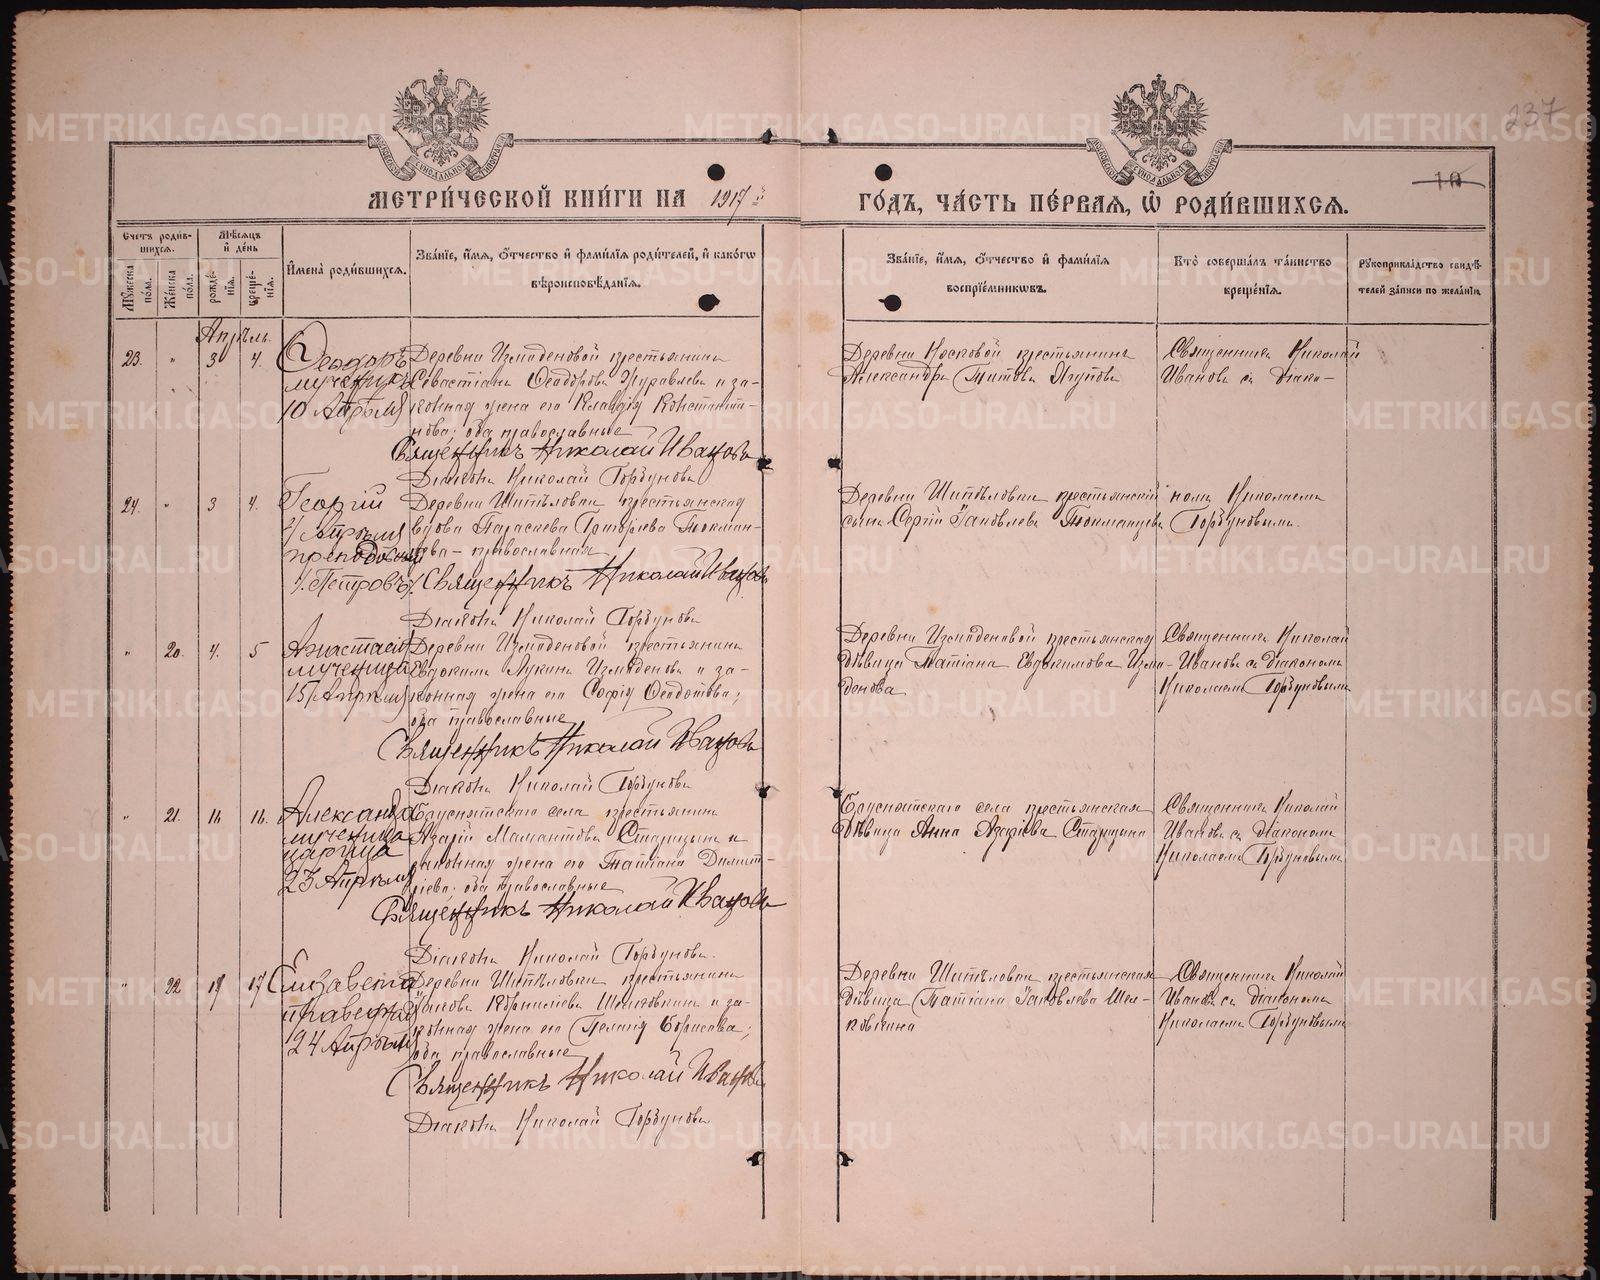 237
10
МЕТРИЧЕСКОЙ КНИГИ НА 1917 й
ГОДЪ, ЧАСТЬ ПЕРВАЯ, Ѿ РОДИВШИХСЯ.
Счетъ родившихся.
Мужеска пола.
Женска пола.
Мѣсяцъ и день
рожденія.
крещенія.
Имена родившихся.
Званіе, имя, отчество и фамилія родителей, и какогѡ
вѣроисповѣданія.
Званіе, имя, отчество и фамилія
воспріемникѡвъ.
Кто совершалъ таинство
крещенія.
Рукоприкладство свидѣ-
телей записи по желанію.
Апрѣль.
23. " 3 4.
Ѳеодоръ
мученикъ
10 Апрѣля
Деревни Измоденовой крестьянинъ
Севастіанъ Ѳеодоровъ Журавлевъ и за-
конная жена его Клавдія Константи-
нова; оба православные
Священникъ Николай Ивановъ
Діаконъ Николай Горбуновъ
Деревни Носковой крестьянинъ
Александръ Титовъ Ягуповъ
Священникъ Николай
Ивановъ съ діако-
24. " 3 4.
Георгій
Апрѣля
преподобный
Деревни Шипѣловки крестьянская
вдова Параскева Григорьева Токман-
цева - православная
Священникъ Николай Ивановъ
Діаконъ Николай Горбуновъ
Деревни Шипѣловки крестьянскій
сынъ Сергій Іаковлевъ Токманцевъ
номъ Николаемъ
Горбуновымъ.
" 20. 4. 5
Анастасія
мученица
15 Апрѣля
Деревни Измоденовой крестьянинъ
Евдокимъ Лукинъ Измоденовъ и за-
конная жена его Софія Ѳеодотова;
оба православные
Священникъ Николай Ивановъ
Діаконъ Николай Горбуновъ
Деревни Измоденовой крестьянская
дѣвица Татіана Евдокимова Измо-
денова
Священникъ Николай
Ивановъ съ діакономъ
Николаемъ Горбуновымъ
" 21. 16. 16.
Александра
мученица
царица
23 Апрѣля
Бруснятскаго села крестьянинъ
Азарій Мамантовъ Старицынъ и
законная жена его Татіана Димит-
ріева; оба православные
Священникъ Николай Ивановъ
Діаконъ Николай Горбуновъ.
Бруснятскаго села крестьянская
дѣвица Анна Азаріева Старицына
Священникъ Николай
Ивановъ съ діакономъ
Николаемъ Горбуновымъ
" 22 17 17
Елизавета
праведная
24 Апрѣля
Деревни Шипѣловки крестьянинъ
Іаковъ Корниліевъ Шелковкинъ и за-
конная жена его Пелагія Борисова;
оба православные
Священникъ Николай Ивановъ
Діаконъ Николай Горбуновъ
Деревни Шипѣловки крестьянская
дѣвица Татіана Іаковлева Шел-
ковкина
Священникъ Николай
Ивановъ съ діакономъ
Николаемъ Горбуновымъ
METRIKI.GASO-URAL.RU